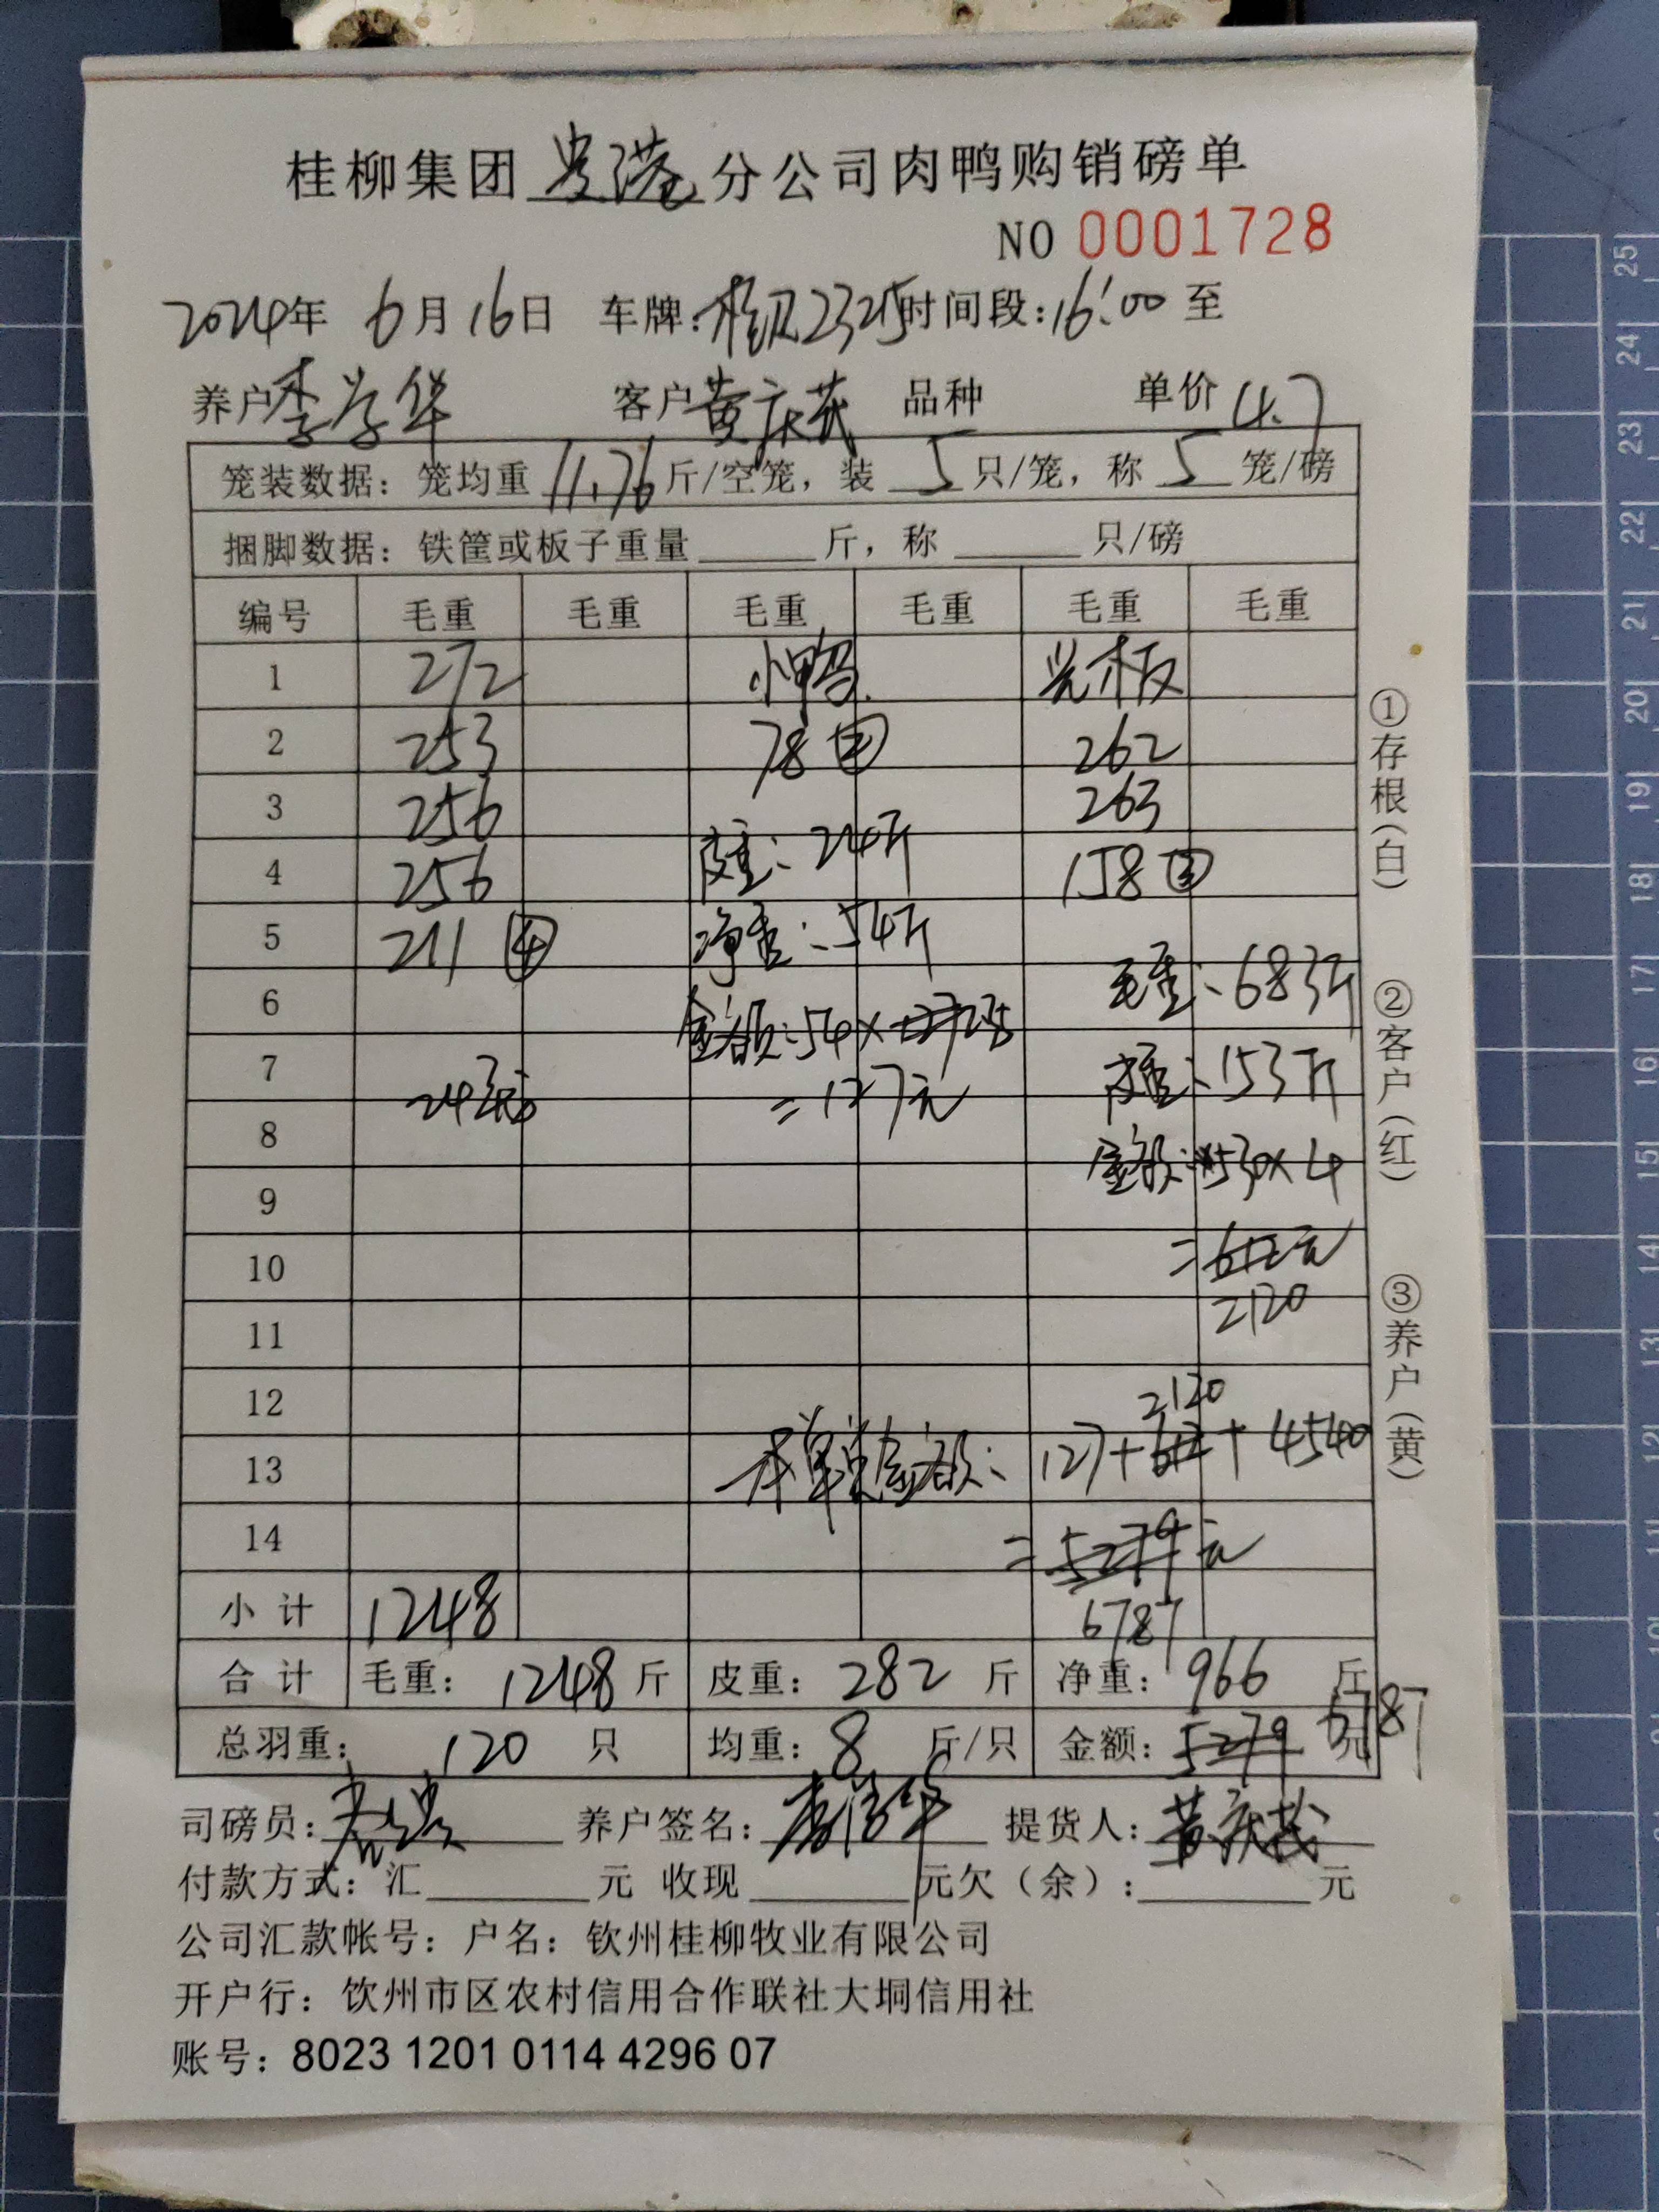 桂柳集团贵港分公司肉鸭购销磅单
NO 0001728
2024年 6月16日 车牌: 2325 时间段:16:00 至
养户 李学华 客户 黄庆茂 品种 单价 4.7
笼装数据: 笼均重 11.76 斤/空笼, 装 5 只/笼, 称 5 笼/磅
捆脚数据: 铁筐或板子重量 斤, 称 只/磅
编号 毛重 毛重 毛重 毛重 毛重 毛重
1 272 小鸭 光板
2 253 78② 262
3 256 263
4 256 皮重:24斤 158③
5 211 ④ 净重:54斤
6 毛重:683斤
金额:54×
7 24笼 =127元 皮重:153斤
8 金额:530×4
9
10 =612元
11 2120
12 2120
13 本单总金额: 127+612+4540
14 =5279元
小计 1248 6787
合计 毛重: 1248 斤 皮重: 282 斤 净重: 966 斤
总羽重: 120 只 均重: 8 斤/只 金额: 5279 元 6787
司磅员: 养户签名: 李学华 提货人: 黄庆茂
付款方式: 汇 元 收现 元欠(余): 元
公司汇款帐号: 户名: 钦州桂柳牧业有限公司
开户行: 钦州市区农村信用合作联社大垌信用社
账号: 8023 1201 0114 4296 07
①存根(白)
②客户(红)
③养户(黄)
25
24
23
22
21
20
19
18
17
16
15
14
13
12
11
10